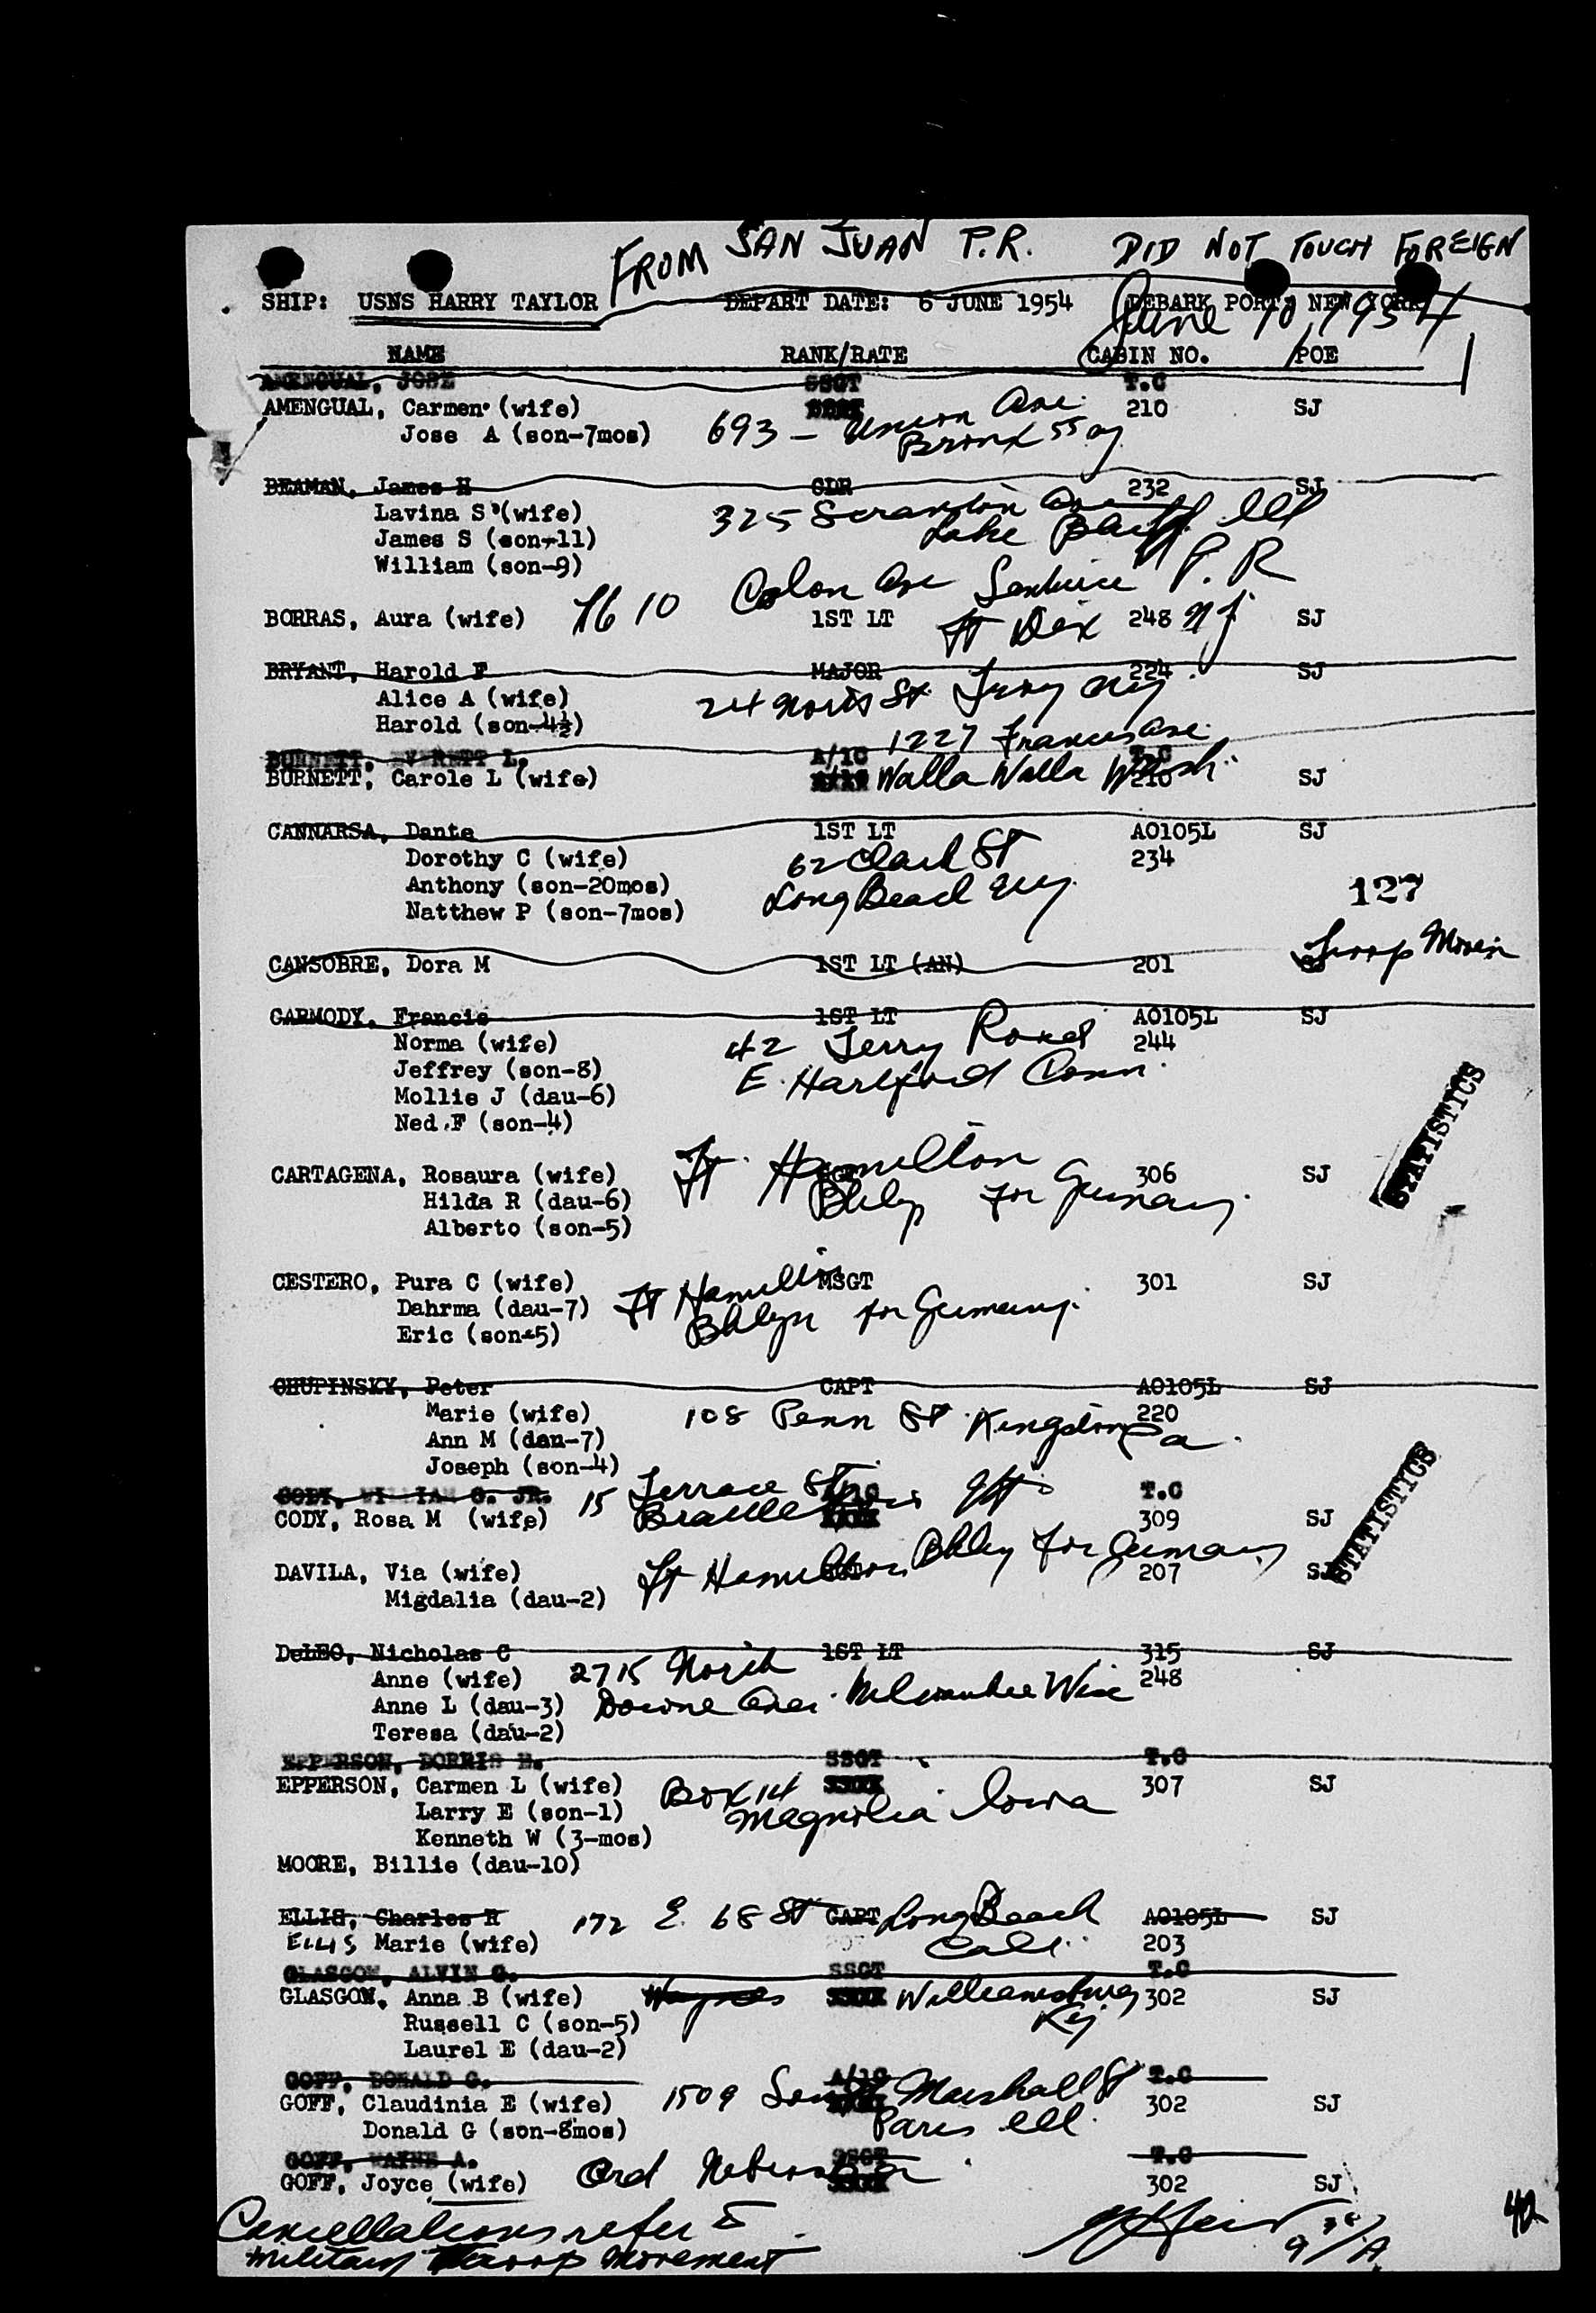 FROM SAN JUAN P.R. DID NOT TOUCH FOREIGN
SHIP: USNS HARRY TAYLOR DEPART DATE: 6 JUNE 1954 DEBARK PORT: NEW YORK
June 10, 1954
NAME RANK/RATE CABIN NO. POE
AMENGUAL, JOSE SSGT T.C
AMENGUAL, Carmen (wife) 210 SJ
Jose A (son-7mos) 693 - Union Ave.
Bronx 55 NY
BEAMAN, James H CDR 232 SJ
Lavina S (wife) 325 Scranton Ave
James S (son-11) Lake Bluff Ill
William (son-9)
1610 Colon Ave Santurce P.R
BORRAS, Aura (wife) 1ST LT Ft Dix 248 NJ SJ
BRYANT, Harold F MAJOR 224 SJ
Alice A (wife) 24 North St. Troy NY
Harold (son-4½)
1227 Francis Ave.
BURNETT, EVERETT L. A/1C T.C
BURNETT, Carole L (wife) Walla Walla Wash. 210 SJ
CANNARSA, Dante 1ST LT AO105L SJ
Dorothy C (wife) 62 Clark St 234
Anthony (son-20mos) Long Beach NY 127
Natthew P (son-7mos)
Troop Movem
CANSOBRE, Dora M 1ST LT (AN) 201 SJ
CARMODY, Francis 1ST LT AO105L SJ
Norma (wife) 42 Terry Road 244
Jeffrey (son-8) E. Hartford Conn.
Mollie J (dau-6)
Ned F (son-4)
STATISTICS
Ft. Hamilton
CARTAGENA, Rosaura (wife) SGT 306 SJ
Hilda R (dau-6) Bklyn for Germany.
Alberto (son-5)
CESTERO, Pura C (wife) Ft Hamilton MSGT 301 SJ
Dahrma (dau-7) Bklyn for Germany.
Eric (son-5)
CHUPINSKY, Peter CAPT AO105L SJ
Marie (wife) 108 Penn St. Kingston Pa. 220
Ann M (dau-7)
Joseph (son-4)
CODY, WILLIAM G. JR. 15 Terrace St T.C
CODY, Rosa M (wife) 309 SJ
STATISTICS
DAVILA, Via (wife) Ft Hamilton Bklyn for Germany SGT 207 SJ
Migdalia (dau-2)
DeLEO, Nicholas C 1ST LT 315 SJ
Anne (wife) 2715 North 248
Anne L (dau-3) Downe Ave. Milwaukee Wisc
Teresa (dau-2)
EPPERSON, DORRIS H. SSGT T.C
EPPERSON, Carmen L (wife) Box 14 307 SJ
Larry E (son-1) Magnolia Iowa
Kenneth W (3-mos)
MOORE, Billie (dau-10)
ELLIS, Charles R 172 E. 68 St CAPT Long Beach AO105L SJ
ELLIS Marie (wife) Calif. 203
GLASGOW, ALVIN G. SSGT T.C
GLASGOW, Anna B (wife) Williamsburg 302 SJ
Russell C (son-5) Ky
Laurel E (dau-2)
GOFF, DONALD G. A/1C T.C
GOFF, Claudinia E (wife) 1509 South Marshall St 302 SJ
Donald G (son-8mos) Paris Ill.
GOFF, WAYNE A. SSGT T.C
GOFF, Joyce (wife) Ord Nebraska 302 SJ
Cancellations refer to
Military Troop Movement
42